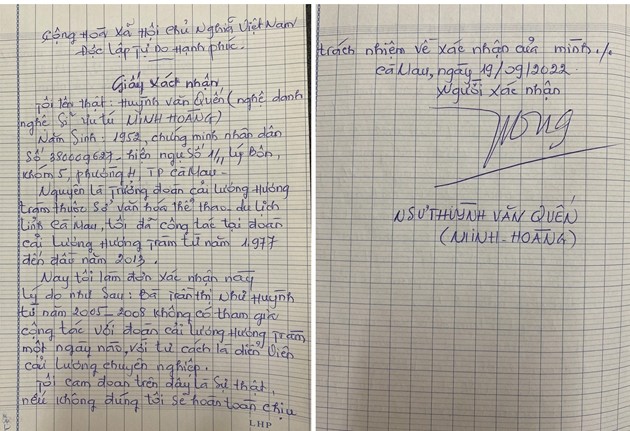 Cộng Hoà Xã Hội Chủ Nghĩa Việt Nam
Độc lập Tự Do Hạnh phúc.
Giấy xác nhận
Tôi tên thật: Huỳnh Văn Quến (nghệ danh
nghệ sĩ ưu tú MINH HOÀNG)
Năm Sinh: 1952, chứng minh nhân dân
Số ngụ Số 1/, Lý Bôn,
khóm 5, phường 4, TP Cà Mau.
Nguyên là Trưởng đoàn cải lương Hương
tràm thuộc Sở văn hóa thể thao du lịch
tỉnh Cà Mau, tôi đã công tác tại đoàn
cải lương Hương Tràm từ năm 1977
đến đầu năm 2013.
Nay tôi làm đơn xác nhận này
lý do như sau: Bà Trần Thị Như Huỳnh
từ năm 2005-2008 không có tham gia
cộng tác với đoàn cải lương Hương Tràm
một ngày nào, với tư cách là diễn viên
cải lương chuyên nghiệp.
Tôi cam đoan trên đây là sự thật,
nếu không đúng tôi sẽ hoàn toàn chịu
LHP
trách nhiệm về xác nhận của mình ./.
Cà Mau, ngày 19/09/2022
Người xác nhận
NSƯT HUỲNH VĂN QUẾN
(MINH-HOÀNG)